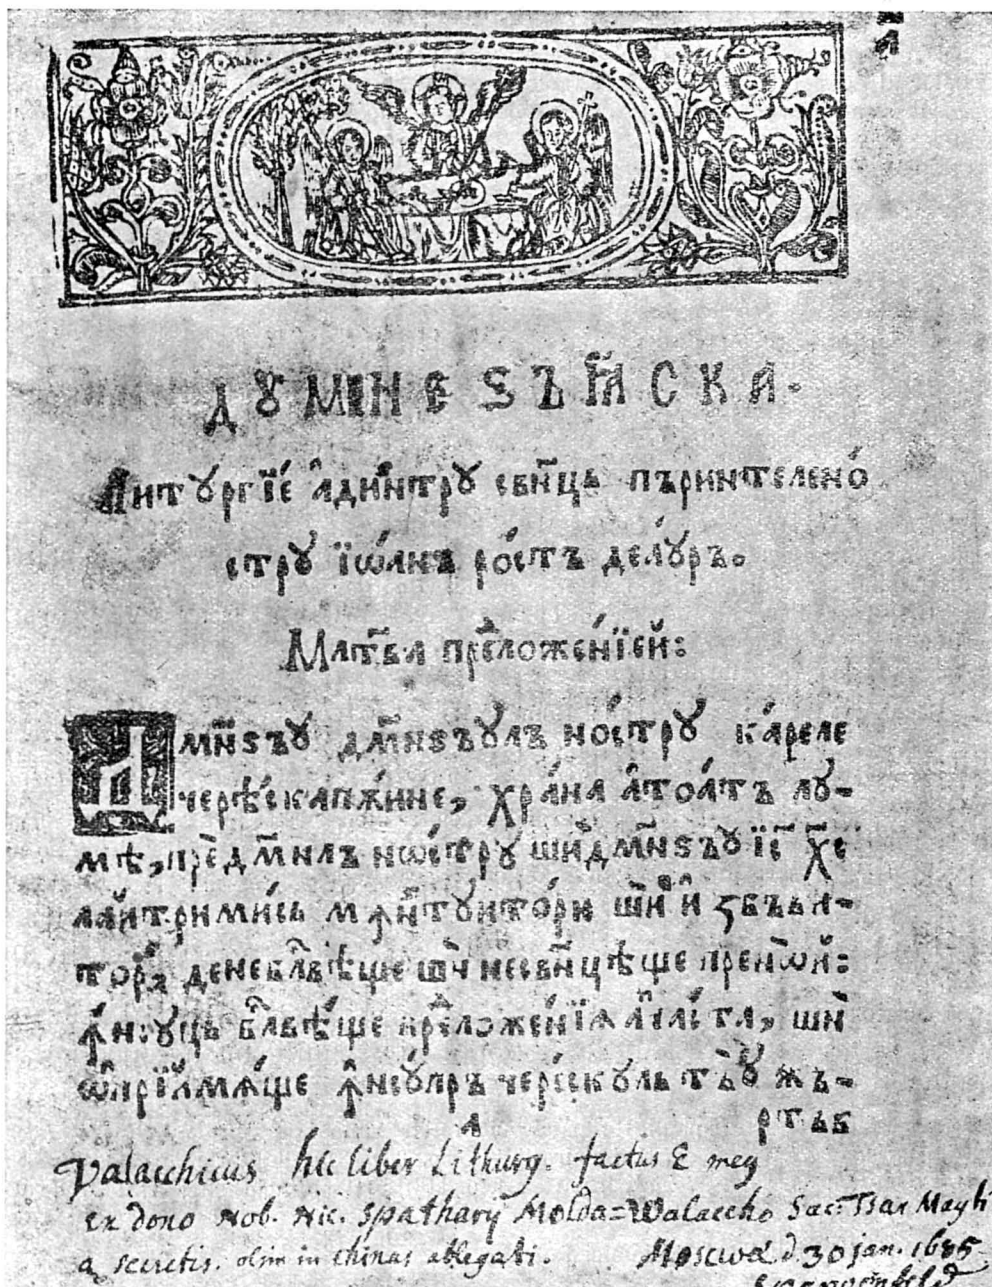 ДꙊМНЕЅЪꙖСКА·
Литꙋргїе адинтрꙋ свⷩ҇ць пъринтелено
стрꙋ їѡанъ ростъ деаꙋръ.
Матⷡ҇ва преⷣложенїей:
Дмⷩ҇ѕъꙋ дмⷩ҇ѕъꙋлъ нострꙋ кареле
черѣскапѫине, храна атоатъ лꙋ-
мѣ, преⷣ дмⷩ҇лъ нѡстрꙋ шидмⷩ҇ѕъꙋ їс҃ хс҃
лаитримись мѫнтꙋитори ши и ꙁбъви-
дене бл҃вѣще ши не свⷩ҇цѣще пре нѡй:
бл҃вѣще преⷣложенїѧ аčаста, ши
ѡприимѧще черескꙋль тъꙋ жъ-
ртъв
а
Valacchicus hic liber Lithurg. factus È meg
ex dono Nob. Nic. Spatharij Molda=Walaccho Sac: Tsar Mayti
a secretis. olim in Chinas ablegati. Moscwa d 30 jan. 1685